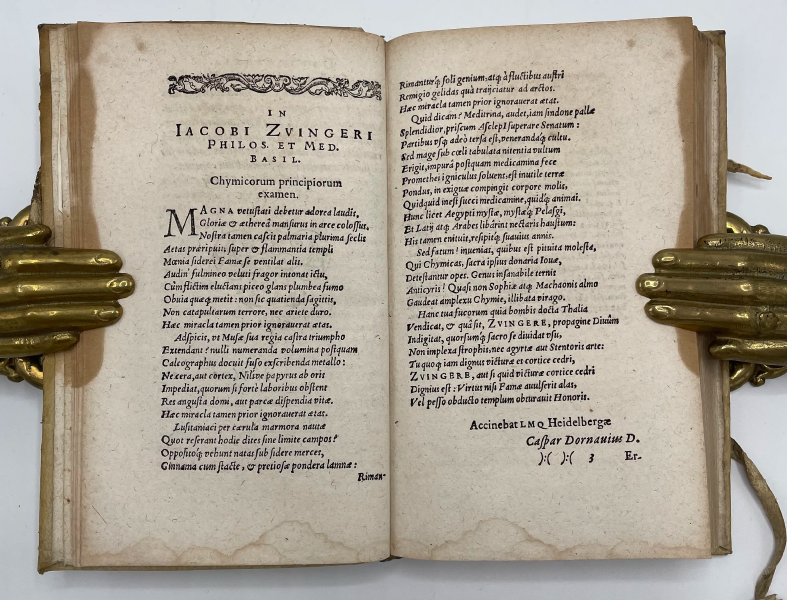 IN
IACOBI ZVINGERI
PHILOS. ET MED.
BASIL.
Chymicorum principiorum
examen.
MAGNA vetustati debetur adorea laudis,
Gloriæ & æthereâ mansurus in arce colossus.
Nostra tamen cascis palmaria plurima seclis
Aetas præripuit; super & flammantia templi
Mœnia siderei Famæ se ventilat alis.
Audin' fulmineo veluti fragor intonat ictu,
Cùm flictim eluctans piceo glans plumbea fumo
Obuia quæq; metit: non sic quatienda sagittis,
Non catapultarum terrore, nec ariete duro.
Hæc miracla tamen prior ignorauerat ætas.
Adspicis, vt Musæ sua regia castra triumpho
Extendant? nulli numeranda volumina postquam
Calcographus docuit fuso exscribenda metallo:
Ne cera, aut cortex, Nilive papyrus ab orit
Impediat, quorum si fortè laboribus obstent
Res angusta domi, aut parcæ dispendia vitæ.
Hæc miracla tamen prior ignorauerat ætas.
Lusitaniaci per cærula marmora nautæ
Quot reserant hodie dites sine limite campos?
Oppositoq; vehunt natas sub sidere merces,
Cinnama cum stacte, & pretiosæ pondera lamnæ:
Riman-
Rimanturq; soli genium, atq; à fluctibus austri
Remigio gelidas quà traijciatur ad arctos.
Hæc miracla tamen prior ignorauerat ætat.
Quid dicam? Meditrina, audet, iam sindone pallæ
Splendidior, priscum Asclepî superare Senatum:
Partibus vsq; adeò tersa est, venerandáq; cultu.
Sed mage sub cœli tabulata nitentia vultum
Erigit, impurâ postquam medicamina fece
Promethei igniculus soluens, est inutile terræ
Pondus, in exiguæ compingit corpore molis,
Quidquid inest succi medicinæ, quidq́; animai.
Hunc licet Aegypti mystæ, mystæq; Pelasgi,
Et Latij atq; Arabes libârint nectaris haustum:
His tamen enituit, respitq; suauius annis.
Sed fatum! inuenias, quibus est pituita molesta,
Qui Chymicas, sacra ipsius donaria Iouæ,
Detestantur opes. Genus insanabile ternis
Anticyris! Quasi non Sophiæ atq; Machaonis almo
Gaudeat amplexu Chymie, illibata virago.
Hanc tua fucorum quia bombis docta Thalia
Vendicat, & quâ sit, ZVINGERE, propagine Divûm
Indigitat, quorsumq; sacro se diuidat vsu,
Non implexa strophis, nec agyrtæ aut Stentoris arte:
Tu quoq; iam dignus victuræ et cortice cedri,
ZVINGERE, aut si quid victuræ cortice cedri
Dignius est: Virtus nisi Famæ auulserit alas,
Vel pesso obducto templum obturauit Honoris.
Accinebat LMQ Heidelbergæ
Caspar Dornauius D.
):( ):( 3 Er-